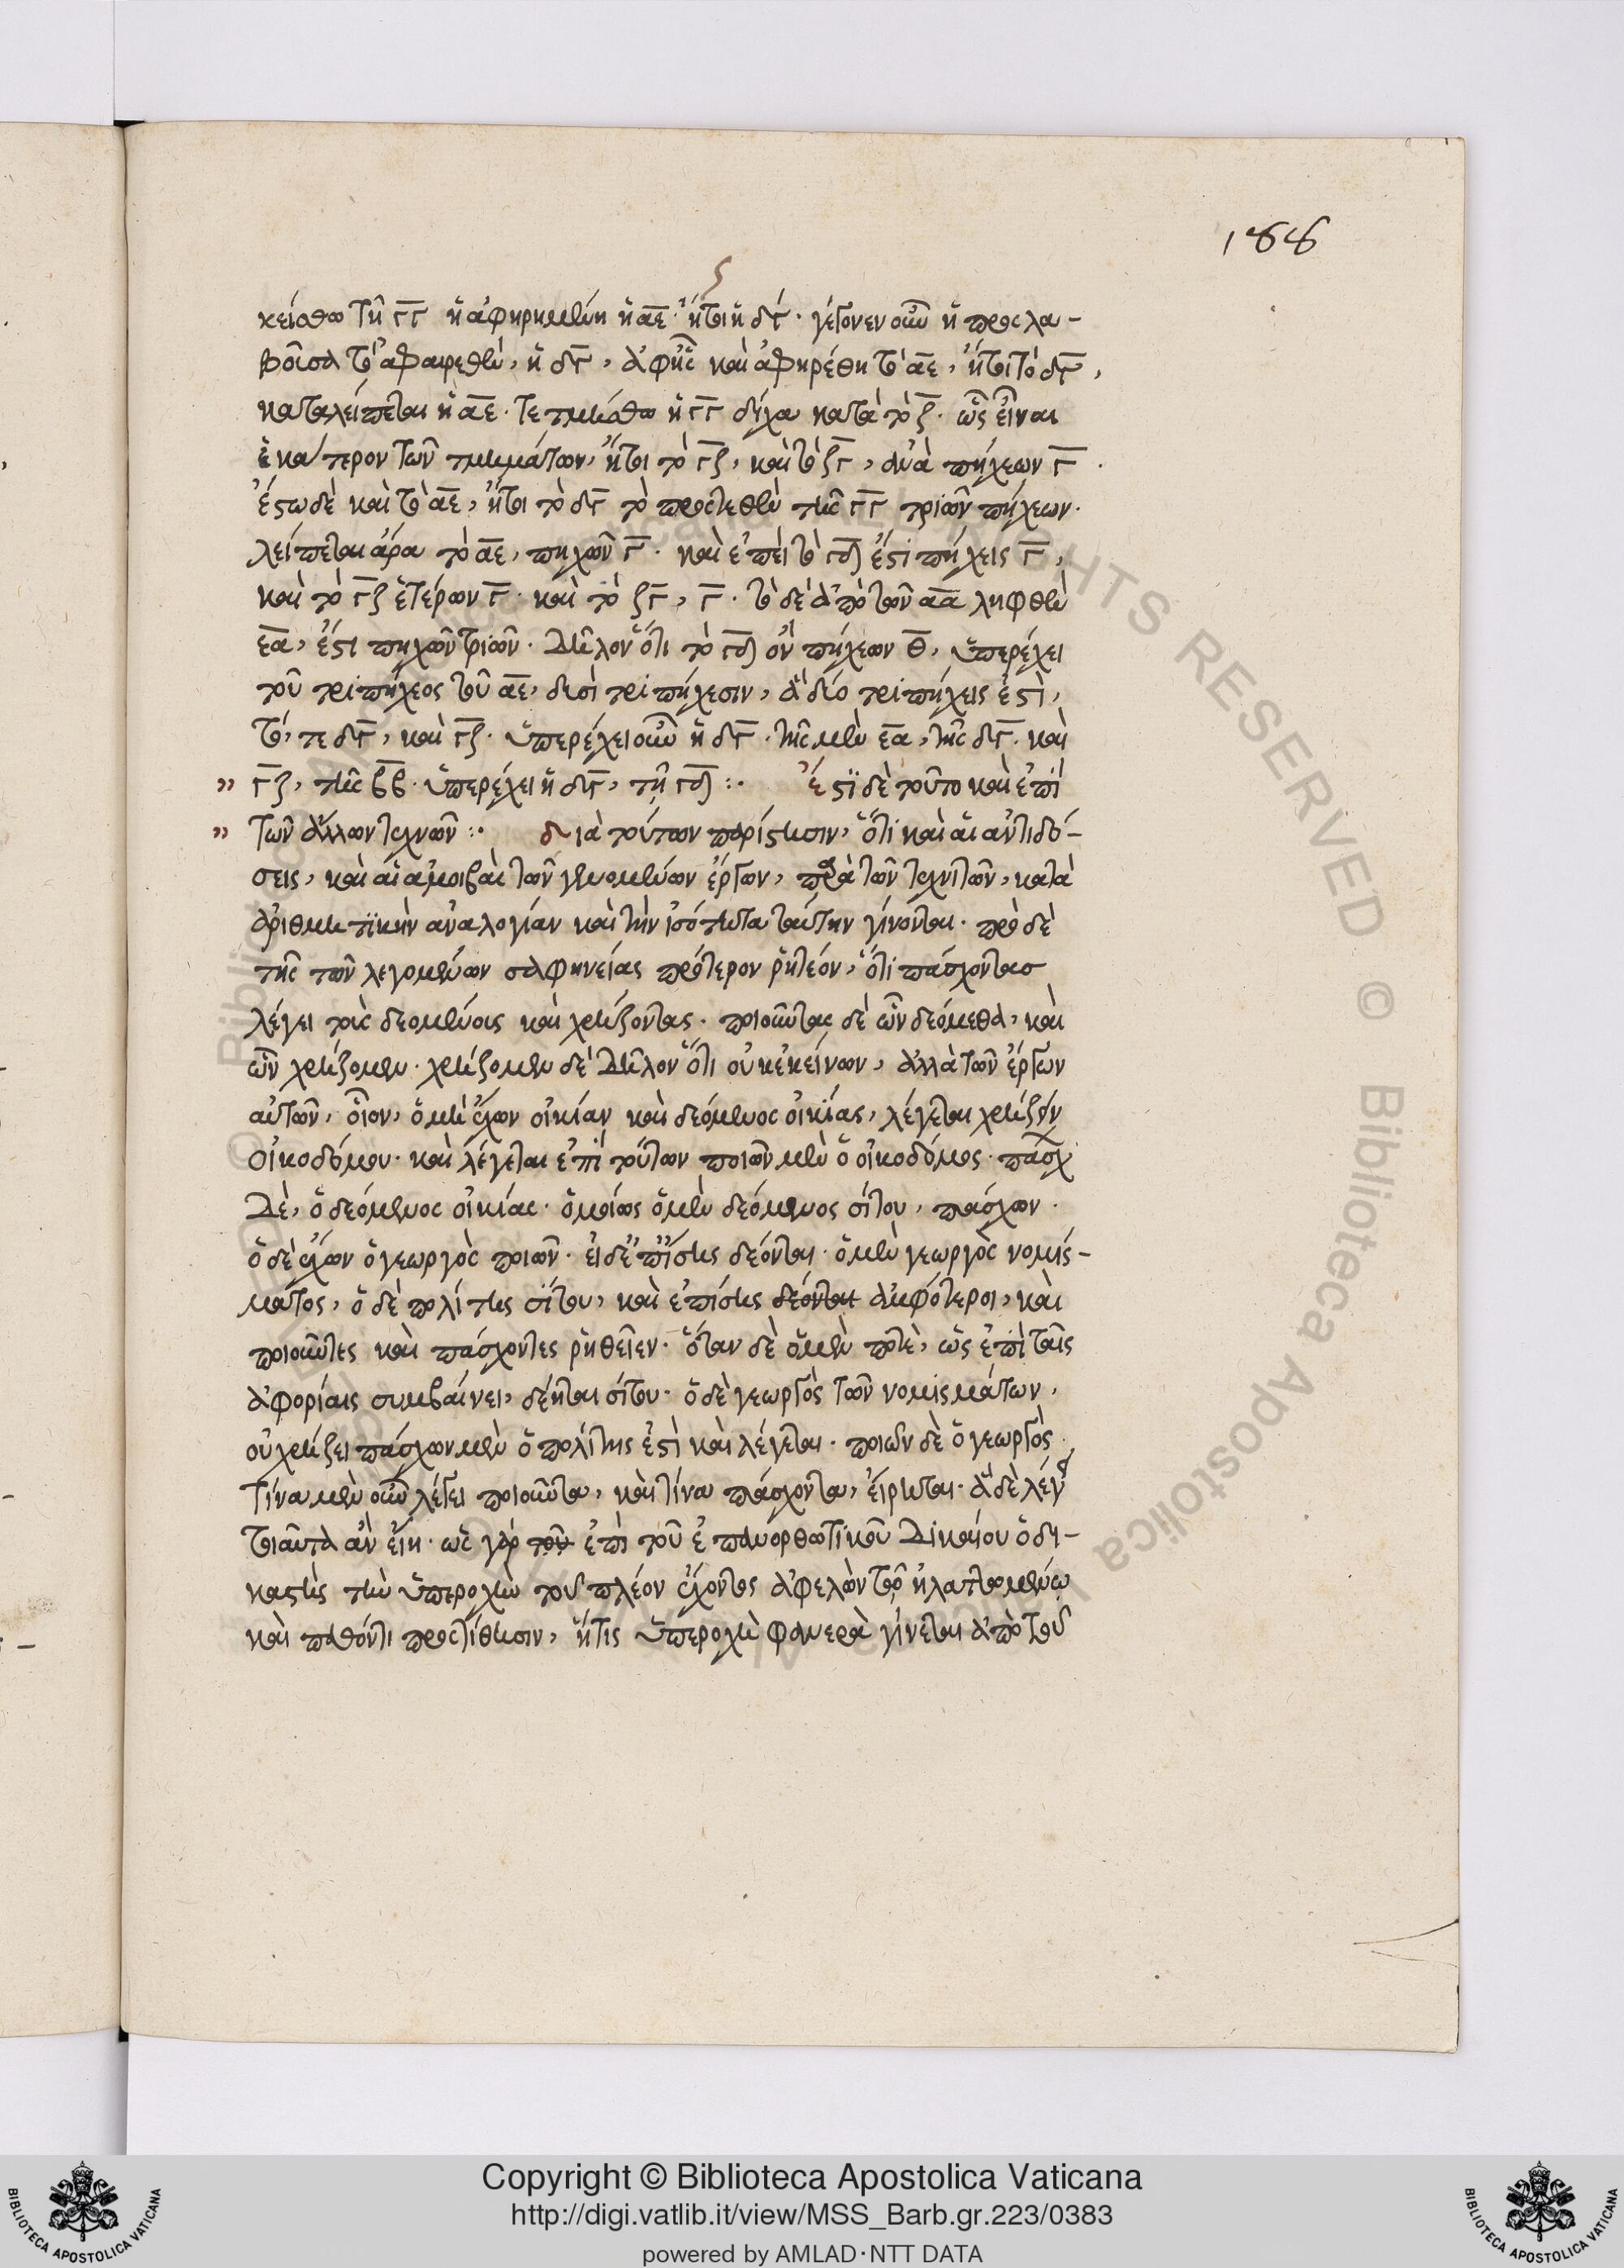 188
ς
κείσθω τῆ γγ ἡ ἀφηρημένη ἡ αε· ἤτοι ἡ δγ· γέγονεν οὖν ἡ προσλα-
βοῦσα τὸ ἀφαιρεθὲν, ἡ δγ, ἀφ' ἧς καὶ ἀφηρέθη τὸ αε, ἤτοι τὸ δγ,
καταλείπεται ἡ αε. τετμήσθω ἡ γγ δίχα κατὰ τὸ ζ. ὡς εἶναι
ἑκάτερον τῶν τμημάτων, ἤτοι τὸ γζ, καὶ τὸ ζγ, ἀνὰ πήχεων γ.
ἔστω δὲ καὶ τὸ αε, ἤτοι τὸ δγ τὸ προστεθὲν τῆς γγ τριῶν πήχεων.
λείπεται ἄρα τὸ αε, πηχῶν γ. καὶ ἐπεὶ τὸ γδ ἐστὶ πήχεις γ,
καὶ τὸ γζ ἑτέρων γ. καὶ τὸ ζγ, γ. τὸ δὲ ἀπὸ τῶν αα ληφθὲν
εα, ἐστὶ πηχῶν τριῶν. Δῆλον ὅτι τὸ γδ ὂν πήχεων θ, ὑπερέχει
τοῦ τριπήχεος τοῦ αε, δυσὶ τριπήχεσιν, ἃ δύο τριπήχεις ἐστὶ,
τό, τε δγ, καὶ γζ. ὑπερέχει οὖν ἡ δγ. τῆς μὲν εα, τῆς δγ. καὶ
" γζ, τῆς ββ. ὑπερέχει ἡ δγ, τῆ γδ :· ἔστι δὲ τοῦτο καὶ ἐπὶ
" τῶν ἄλλων τεχνῶν :· διὰ τούτων παρίστησιν, ὅτι καὶ αἱ ἀντιδό-
σεις, καὶ αἱ ἀμοιβαὶ τῶν γενομένων ἔργων, παρὰ τῶν τεχνιτῶν, κατὰ
ἀριθμητικὴν ἀναλογίαν καὶ τὴν ἰσότητα ταύτην γίνονται. πρὸ δὲ
τῆς τῶν λεγομένων σαφηνείας πρότερον ῥητέον, ὅτι πάσχοντας
λέγει τοὺς δεομένους καὶ χρήζοντας. ποιοῦντας δὲ ὧν δεόμεθα, καὶ
ὧν χρήζομεν. χρήζομεν δὲ Δῆλον ὅτι οὐκ ἐκείνων, ἀλλὰ τῶν ἔργων
αὐτῶν, οἷον, ὁ μὴ ἔχων οἰκίαν καὶ δεόμενος οἰκίας, λέγεται χρήζειν
οἰκοδόμου. καὶ λέγεται ἐπὶ τούτων ποιῶν μὲν ὁ οἰκοδόμος. πάσχ
Δὲ, ὁ δεόμενος οἰκίας. ὁμοίως ὁ μὲν δεόμενος σίτου, πάσχων.
ὁ δὲ ἔχων ὁ γεωργὸς ποιῶν. εἰ δὲ ἐπίσης δέονται. ὁ μὲν γεωργὸς νομίσ-
ματος, ὁ δὲ πολίτης σίτου, καὶ ἐπίσης δέονται ἀμφότεροι, καὶ
ποιοῦντες καὶ πάσχοντες ῥηθεῖεν. ὅταν δὲ ὁ μὲν ποτὲ, ὡς ἐπὶ ταῖς
ἀφορίαις συμβαίνει, δέηται σίτου. ὁ δὲ γεωργὸς τῶν νομισμάτων,
οὐ χρήζει πάσχων μὲν ὁ πολίτης ἐστὶ καὶ λέγεται. ποιῶν δὲ ὁ γεωργὸς.
τίνα μὲν οὖν λέγει ποιοῦντα, καὶ τίνα πάσχοντα, εἴρηται. ἃ δὲ λέγει
τοιαῦτα ἂν εἴη. ὡς γὰρ τοῦ ἐπὶ τοῦ ἐπανορθωτικοῦ Δικαίου ὁ δι-
καστὴς τὴν ὑπεροχὴν τοῦ πλέον ἔχοντος ἀφελὼν τῷ ἠλαττωμένῳ
καὶ παθόντι προστίθησιν, ἥτις ὑπεροχὴ φανερὰ γίνεται ἀπὸ τοῦ
Copyright © Biblioteca Apostolica Vaticana
http://digi.vatlib.it/view/MSS_Barb.gr.223/0383
powered by AMLAD·NTT DATA